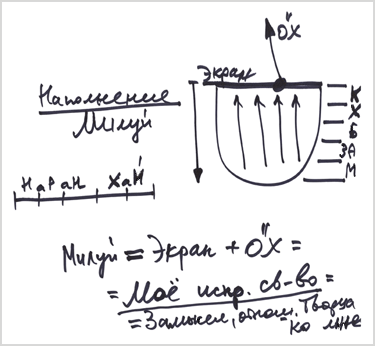 О"Х
Экран
Наполнение
Милуй
К
Х
Б
ЗА
М
НаРаН ХаЙ
Милуй = Экран + О"Х =
= Моё испр. св-во =
= Замысел, отнош. Творца
ко мне